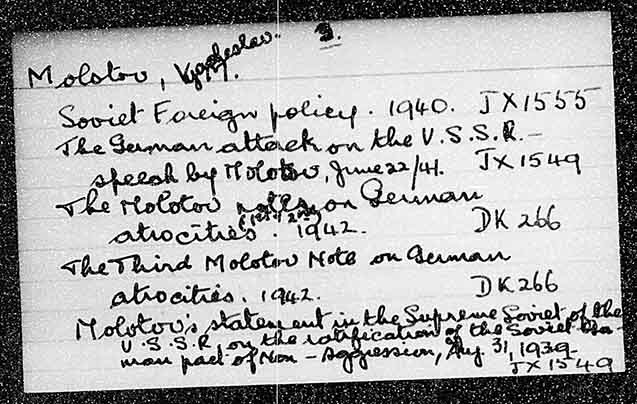 3.
Molotov, Vyacheslav.
Soviet Foreign policy. 1940. JX1555
The German attack on the U.S.S.R. -
speech by Molotov, June 22/41. JX1549
The Molotov notes on German
(1st & 2nd)
atrocities. 1942. DK 266
The Third Molotov Note on German
atrocities. 1942. DK 266
Molotov's statement in the Supreme Soviet of the
U.S.S.R. on the ratification of the Soviet-Ger-
man pact of Non-Aggression, Aug. 31, 1939-
JX1549